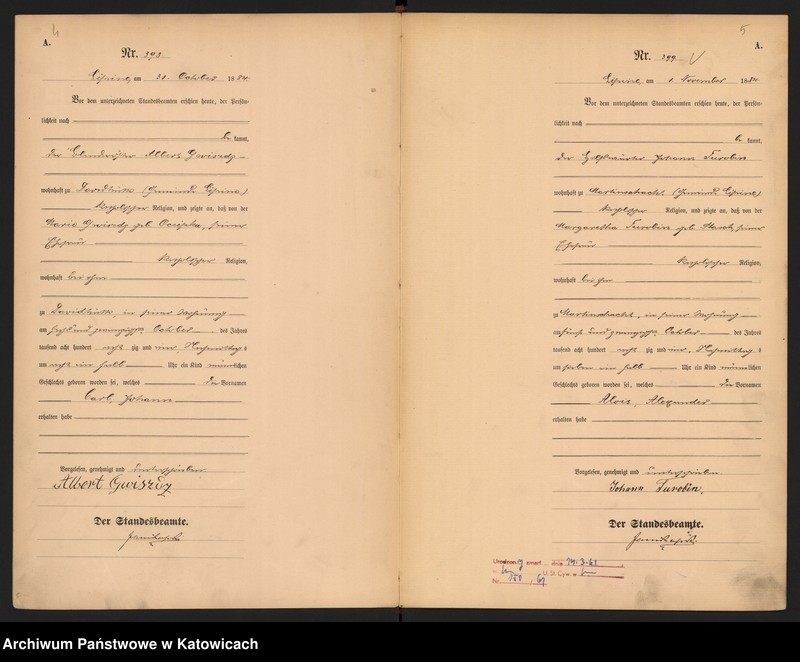 4
A.
Nr. 393.
Lipine, am 31. October 1884.
Vor dem unterzeichneten Standesbeamten erschien heute, der Persön-
lichkeit nach
be kannt,
der Albert Gwisdz
wohnhaft zu (Gemeinde Lipine)
katholischer Religion, und zeigte an, daß von der
Marie Gwisdz geb. seiner
Ehefrau
katholischer Religion,
wohnhaft bei ihm
zu in seiner Wohnung
am sechs und zwanzigsten October des Jahres
tausend acht hundert acht zig und vier Nachmittags
um acht ein halb Uhr ein Kind männlichen
Geschlechts geboren worden sei, welches die Vornamen
Carl Johann
erhalten habe
Vorgelesen, genehmigt und unterschrieben
Albert Gwisdz
Der Standesbeamte.
5
A.
Nr. 394
Lipine, am 1. November 1884.
Vor dem unterzeichneten Standesbeamten erschien heute, der Persön-
lichkeit nach
be kannt,
der Johann Turobin
wohnhaft zu Martinschacht (Gemeinde Lipine)
katholischer Religion, und zeigte an, daß von der
Margaretha Turobin geb. seiner
Ehefrau
katholischer Religion,
wohnhaft bei ihm
zu Martinschacht, in seiner Wohnung
am fünf und zwanzigsten October des Jahres
tausend acht hundert acht zig und vier, Nachmittags
um sieben ein halb Uhr ein Kind männlichen
Geschlechts geboren worden sei, welches die Vornamen
Alois Alexander
erhalten habe
Vorgelesen, genehmigt und unterschrieben
Johann Turobin.
Der Standesbeamte.
zmarł dnia 14.3.61
U.St.Cyw. w
Nr.
Archiwum Państwowe w Katowicach